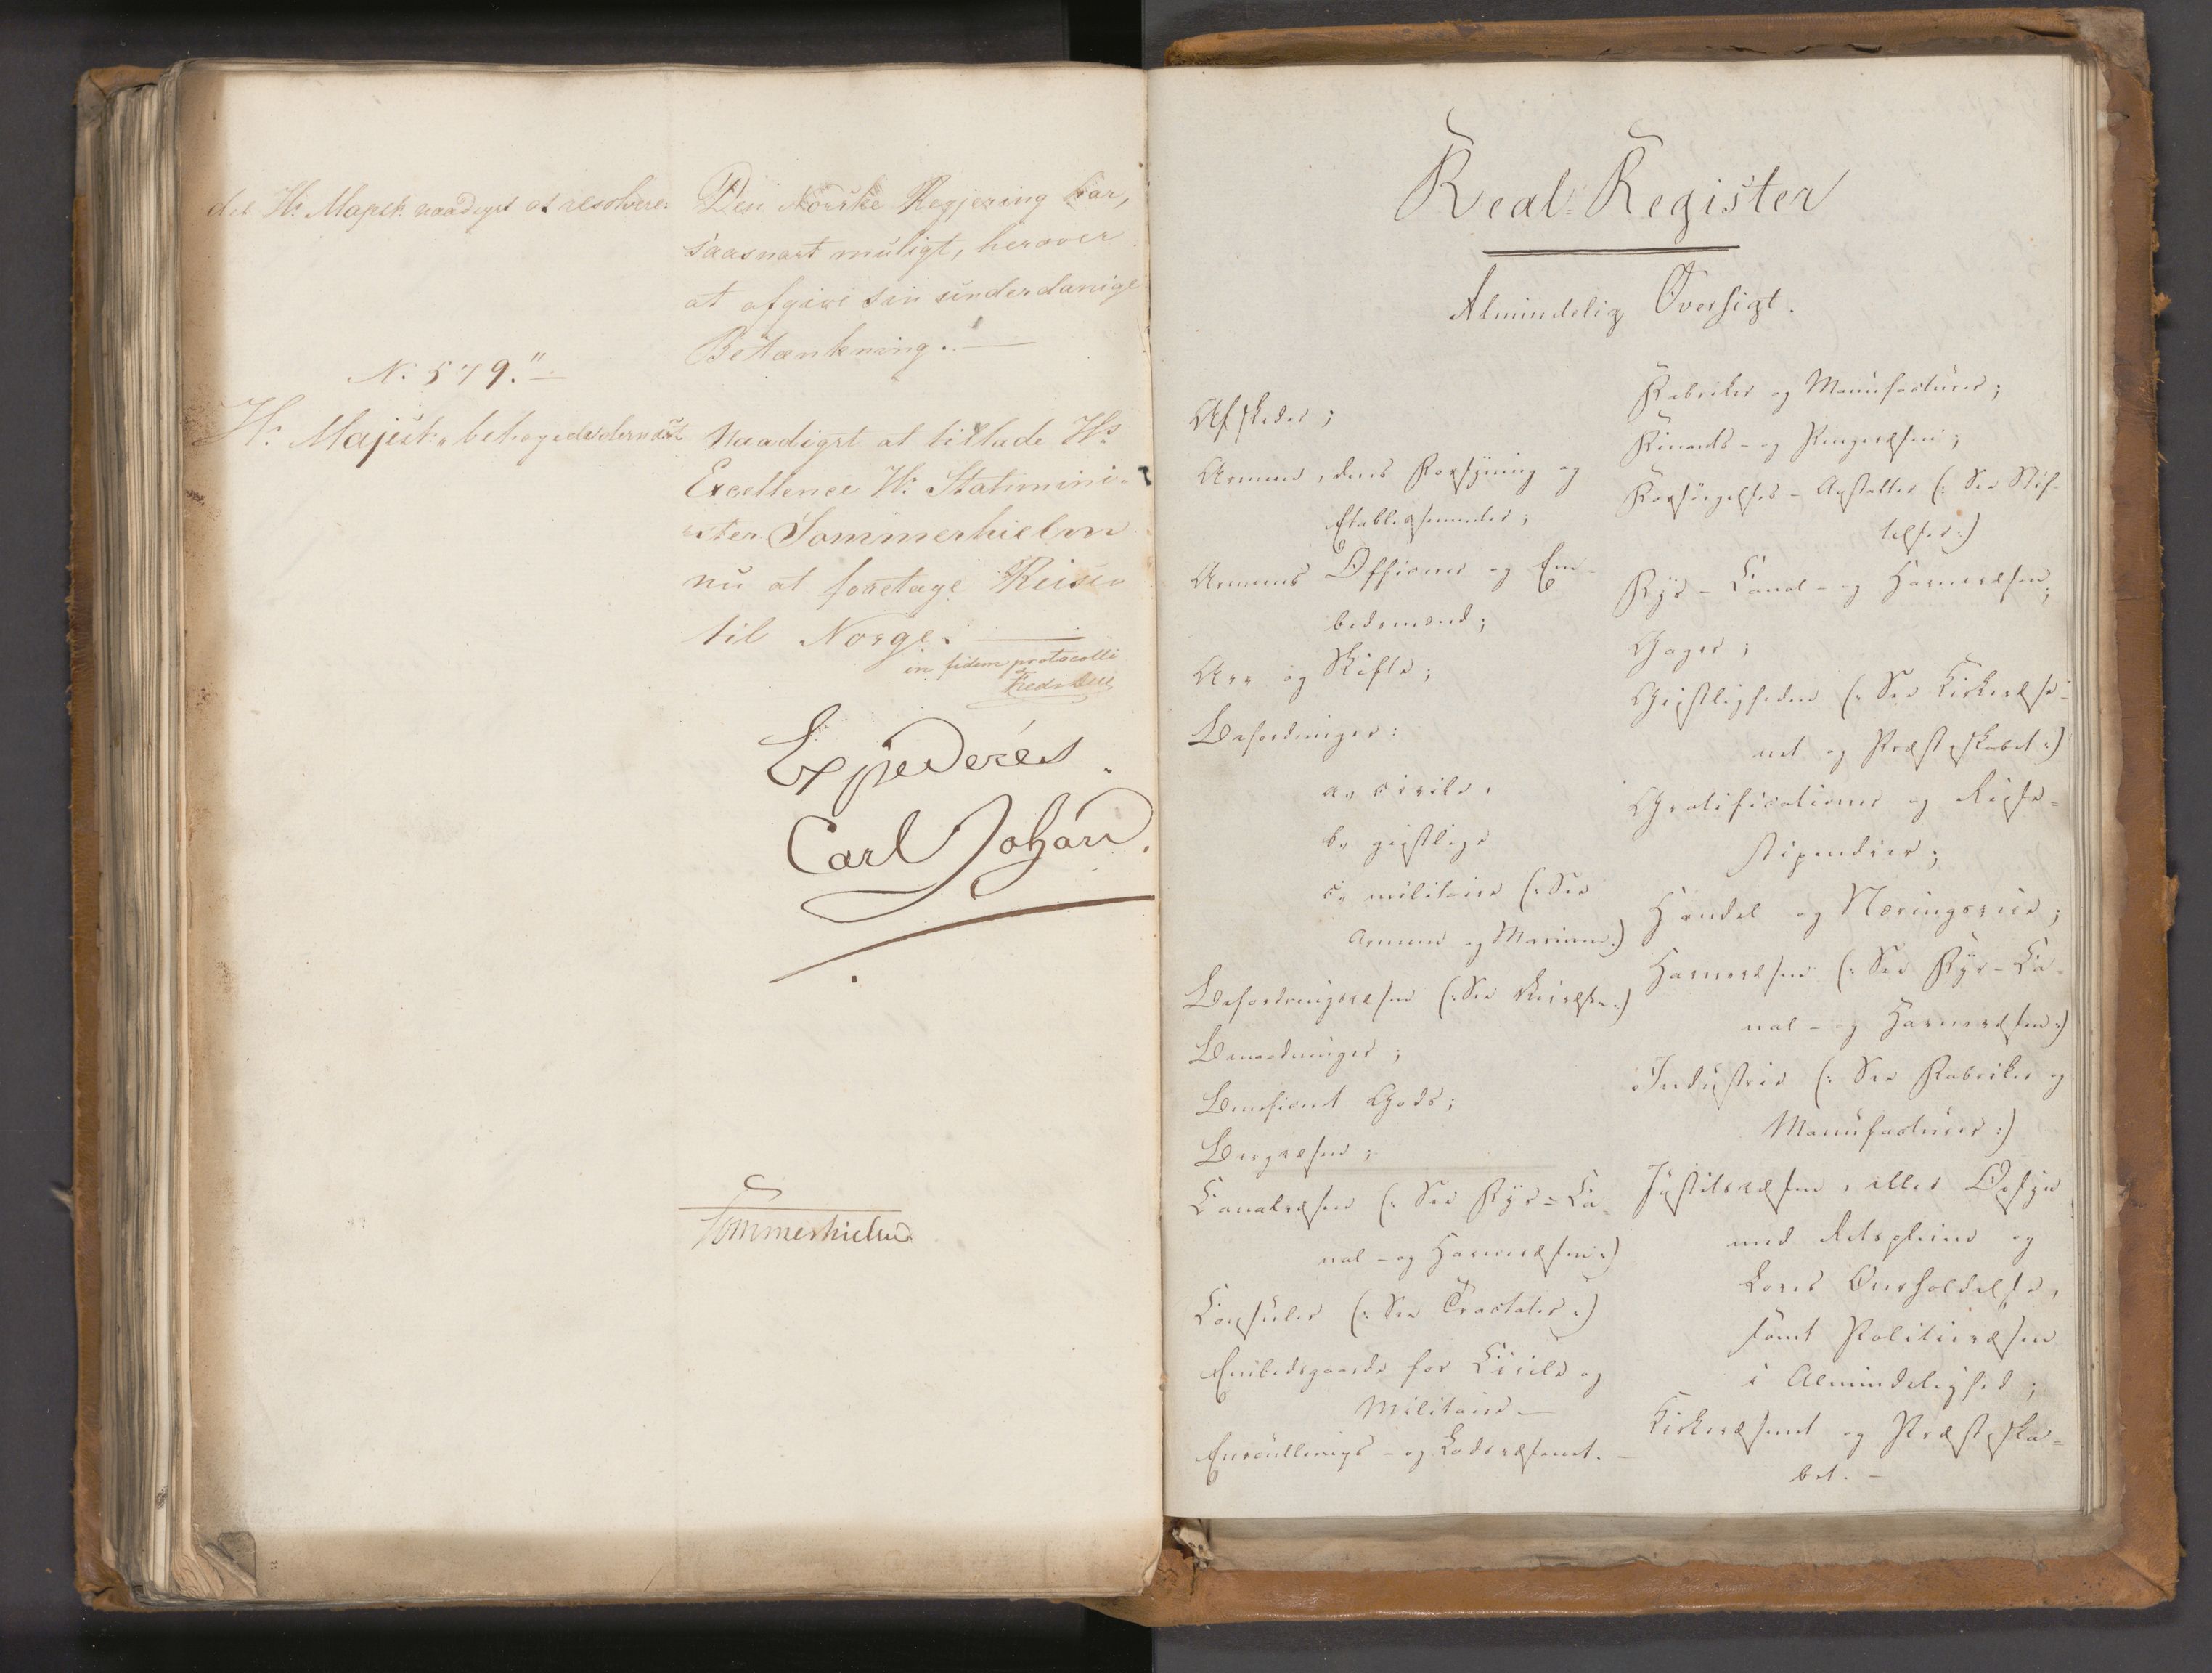 det Hs. Majest. naadigst at resolvere:
Den Norske Regjering har,
saasnart muligt, herover
at afgive sin underdanige
Betænkning. —
N: 579." —
Hs. Majest: behagede dernæst
Naadigst at tillade Hs
Excellence Hr. Statsmini-
ster Sommerhielm
nu at foretage Reisen
til Norge. —
in fidem protocolli
Expederes.
Carl Johan.
Sommerhielm
Real-Register
Almindelig Oversigt.
Afskeder;
Armeen, dens Forsyning og
Etablissementer;
Armeens Officerer og Em-
bedsmænd;
Arv og Skifte;
Befordringer:
a, civile,
b, geistlige
c, militaire (: See
Armeen og Marinen:)
Befordringsvæsen (: See Veivæsen:)
Benaadninger;
Beneficeret Gods;
Bergvæsen;
Canalvæsen (: See Fyr-Ca-
nal- og Havnevæsen:)
Consuler (: See Tractater:)
Embedsgaarde for Civile og
Militaire —
Enroullerings- og Lodsvæsenet. —
Fabriker og Manufacturer;
Finants- og Pengevæsen;
Forsørgelses-Anstalter (: See Stif-
telser:)
Fyr-Canal- og Havnevæsen;
Gager;
Geistligheden (: See Kirkevæse-
net og Præsteskabet:)
Gratificationer og Reise-
stipendier;
Handel og Næringsveie;
Havnevæsen (: See Fyr-Ca-
nal- og Havnevæsen:)
Industrie (: See Fabriker og
Manufacturer:)
Justitsvæsen, eller Opsyn
med Retspleien og
Loves Overholdelse,
samt Politievæsen
i Almindelighed;
Kirkevæsenet og Præsteska-
bet. —